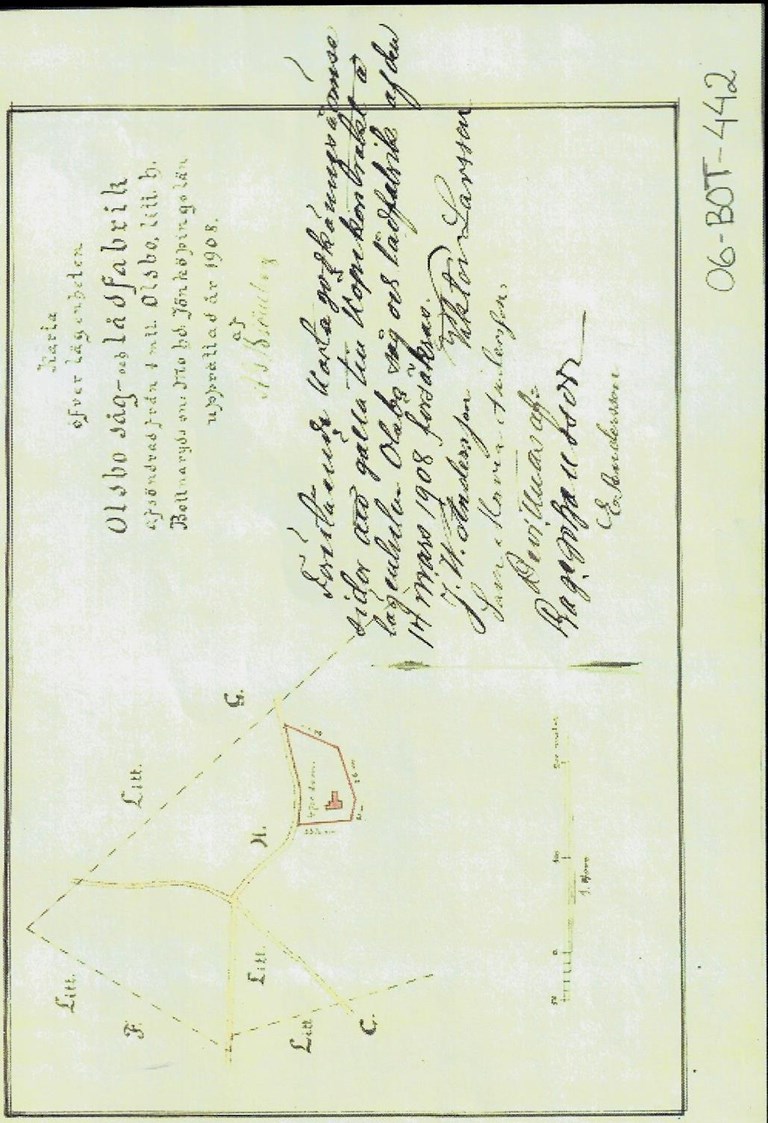 Karta
öfver lägenheten
Olsbo såg- och lådfabrik
afsöndrad från 1 mtl. Olsbo, litt. H.
Bottnaryds sn. Mo hd. Jönköpings län
upprättad år 1908.
af
Förestående karta godkännes å ömse
sidor att gälla till köpekontraktet å
lägenheten Olsbo såg och lådfabrik af den
14 mars 1908 försäkras.
J. W. Andersson Viktor Larsson
Maria Andersson
Bevittnas af:
E. Andersson
Litt.
G.
Litt.
F.
H.
Litt.
Litt
C.
06-BOT-442